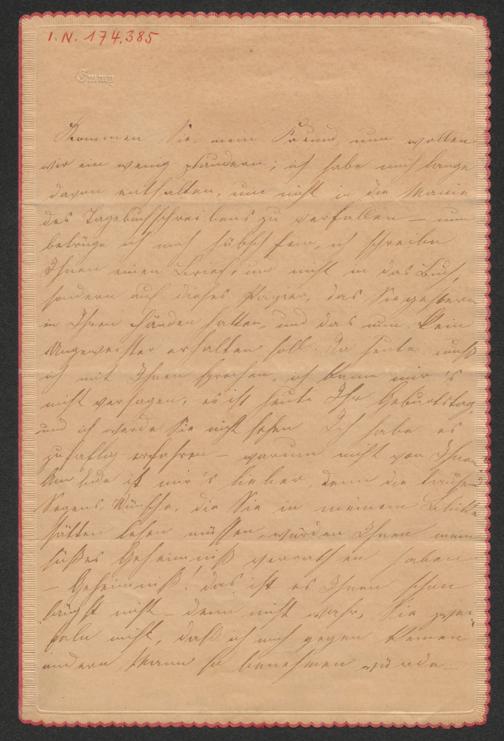 I. N. 174.385
Emmy
Kommen Sie, mein Freund, nun wollen
wir ein wenig plaudern; ich habe mich lange
davon enthalten, um nicht in die Manie
des Tagebuchschreibens zu verfallen – nun
betrüge ich mich hübsch fein, ich schreibe
Ihnen einen Brief, und nicht in das Buch,
sondern auf dieses Papier, das Sie gestern
in Ihren Händen hatten, und das nun kein
Ungeweihter erhalten soll. Da heute muß
ich mit Ihnen sprechen, ich kann mir's
nicht versagen, es ist heute Ihr Geburtstag,
und ich werde Sie nicht sehen. Ich habe es
zufällig erfahren – warum nicht von Ihnen?
Am Ende ist mir's lieber, denn die
Segens Wünsche, die Sie in meinem Blicke
hätten lesen müssen, würden Ihnen mein
süßes Geheimniß verrathen haben
– Geheimniß! das ist es Ihnen schon
längst nicht – denn nicht wahr, Sie zwei-
feln nicht, daß ich mich gegen keinen
andern Mann so benehmen würde